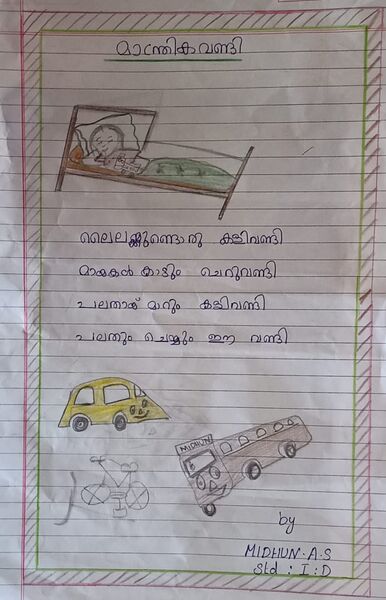 മാന്ത്രികവണ്ടി
ലൈലയ്ക്കുണ്ടൊരു കട്ടിവണ്ടി
മായകൾ കാട്ടും ചെറുവണ്ടി
പലതായ് മാറും കട്ടിവണ്ടി
പലതും ചെയ്യും ഈ വണ്ടി
MIDHUN
by
MIDHUN.A.S
Std : I:D